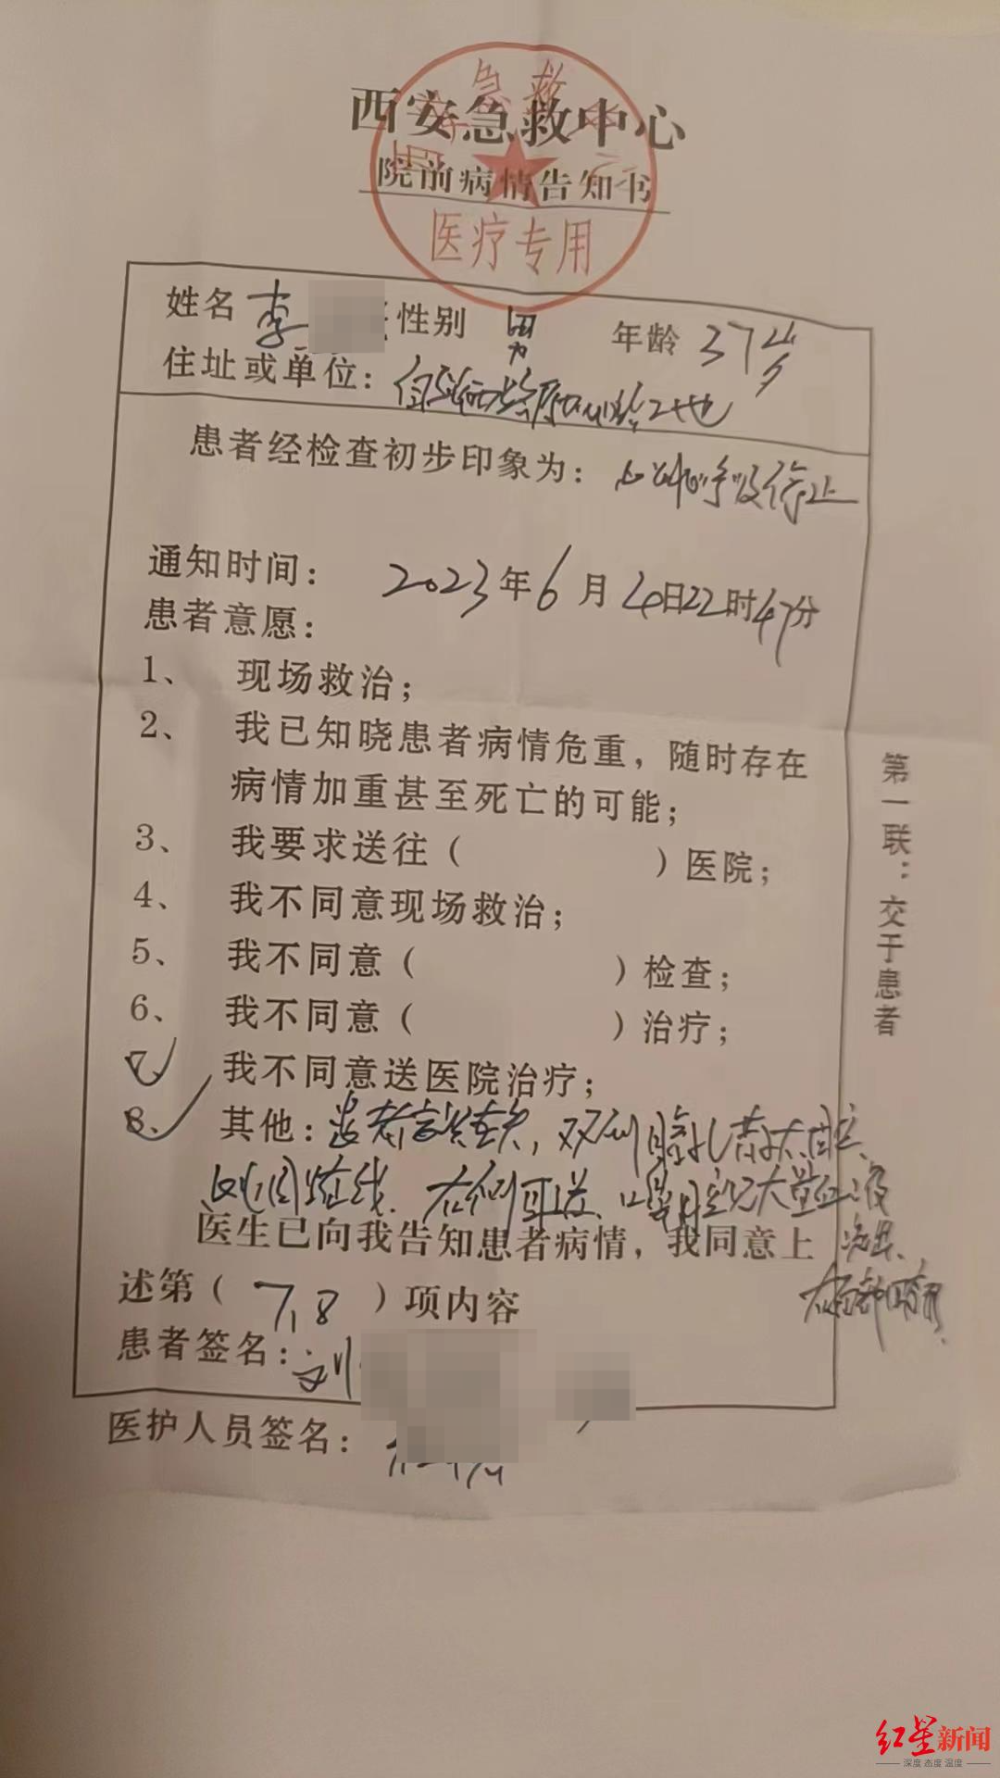 西安急救中心
院前病情告知书
急救
医疗专用
姓名 李 性别 男 年龄 37岁
住址或单位：工地
患者经检查初步印象为：心跳呼吸停止
通知时间： 2023年6月4日22时47分
患者意愿：
1、 现场救治；
2、 我已知晓患者病情危重，随时存在
病情加重甚至死亡的可能；
3、 我要求送往（ ）医院；
4、 我不同意现场救治；
5、 我不同意（ ）检查；
6、 我不同意（ ）治疗；
7、 我不同意送医院治疗；
8、 其他：患者意识丧失，双侧瞳孔散大固定、
心电图直线、右侧耳道、口鼻腔见大量血液
医生已向我告知患者病情，我同意上 流出、
述第（ 7,8 ）项内容
患者签名：刘
医护人员签名：
第一联：交于患者
红星新闻
深度 态度 温度